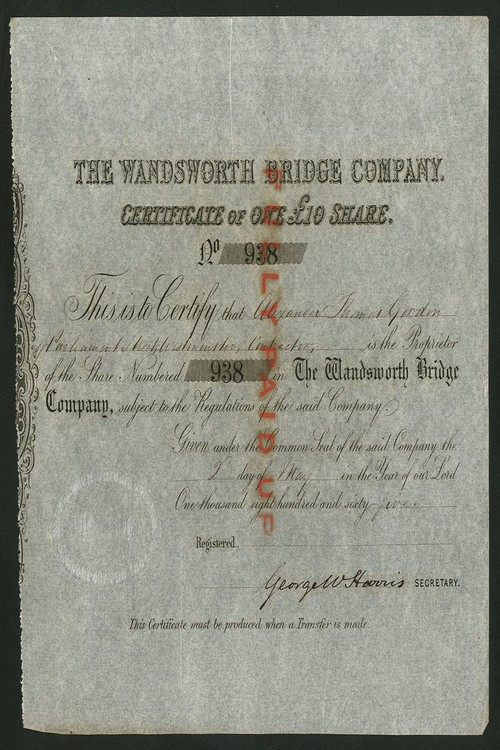 THE WANDSWORTH BRIDGE COMPANY.
CERTIFICATE OF ONE £10 SHARE.
No 938
This is to Certify that Alexander Thomas Gordon
of Parliament Street Westminster, Contractor, is the Proprietor
of the Share Numbered 938 in The Wandsworth Bridge
Company, subject to the Regulations of the said Company.
Given under the Common Seal of the said Company the
2 day of May in the Year of our Lord
One thousand eight hundred and sixty-five
Registered.
George W Harris SECRETARY.
This Certificate must be produced when a Transfer is made.
FULLY PAID UP